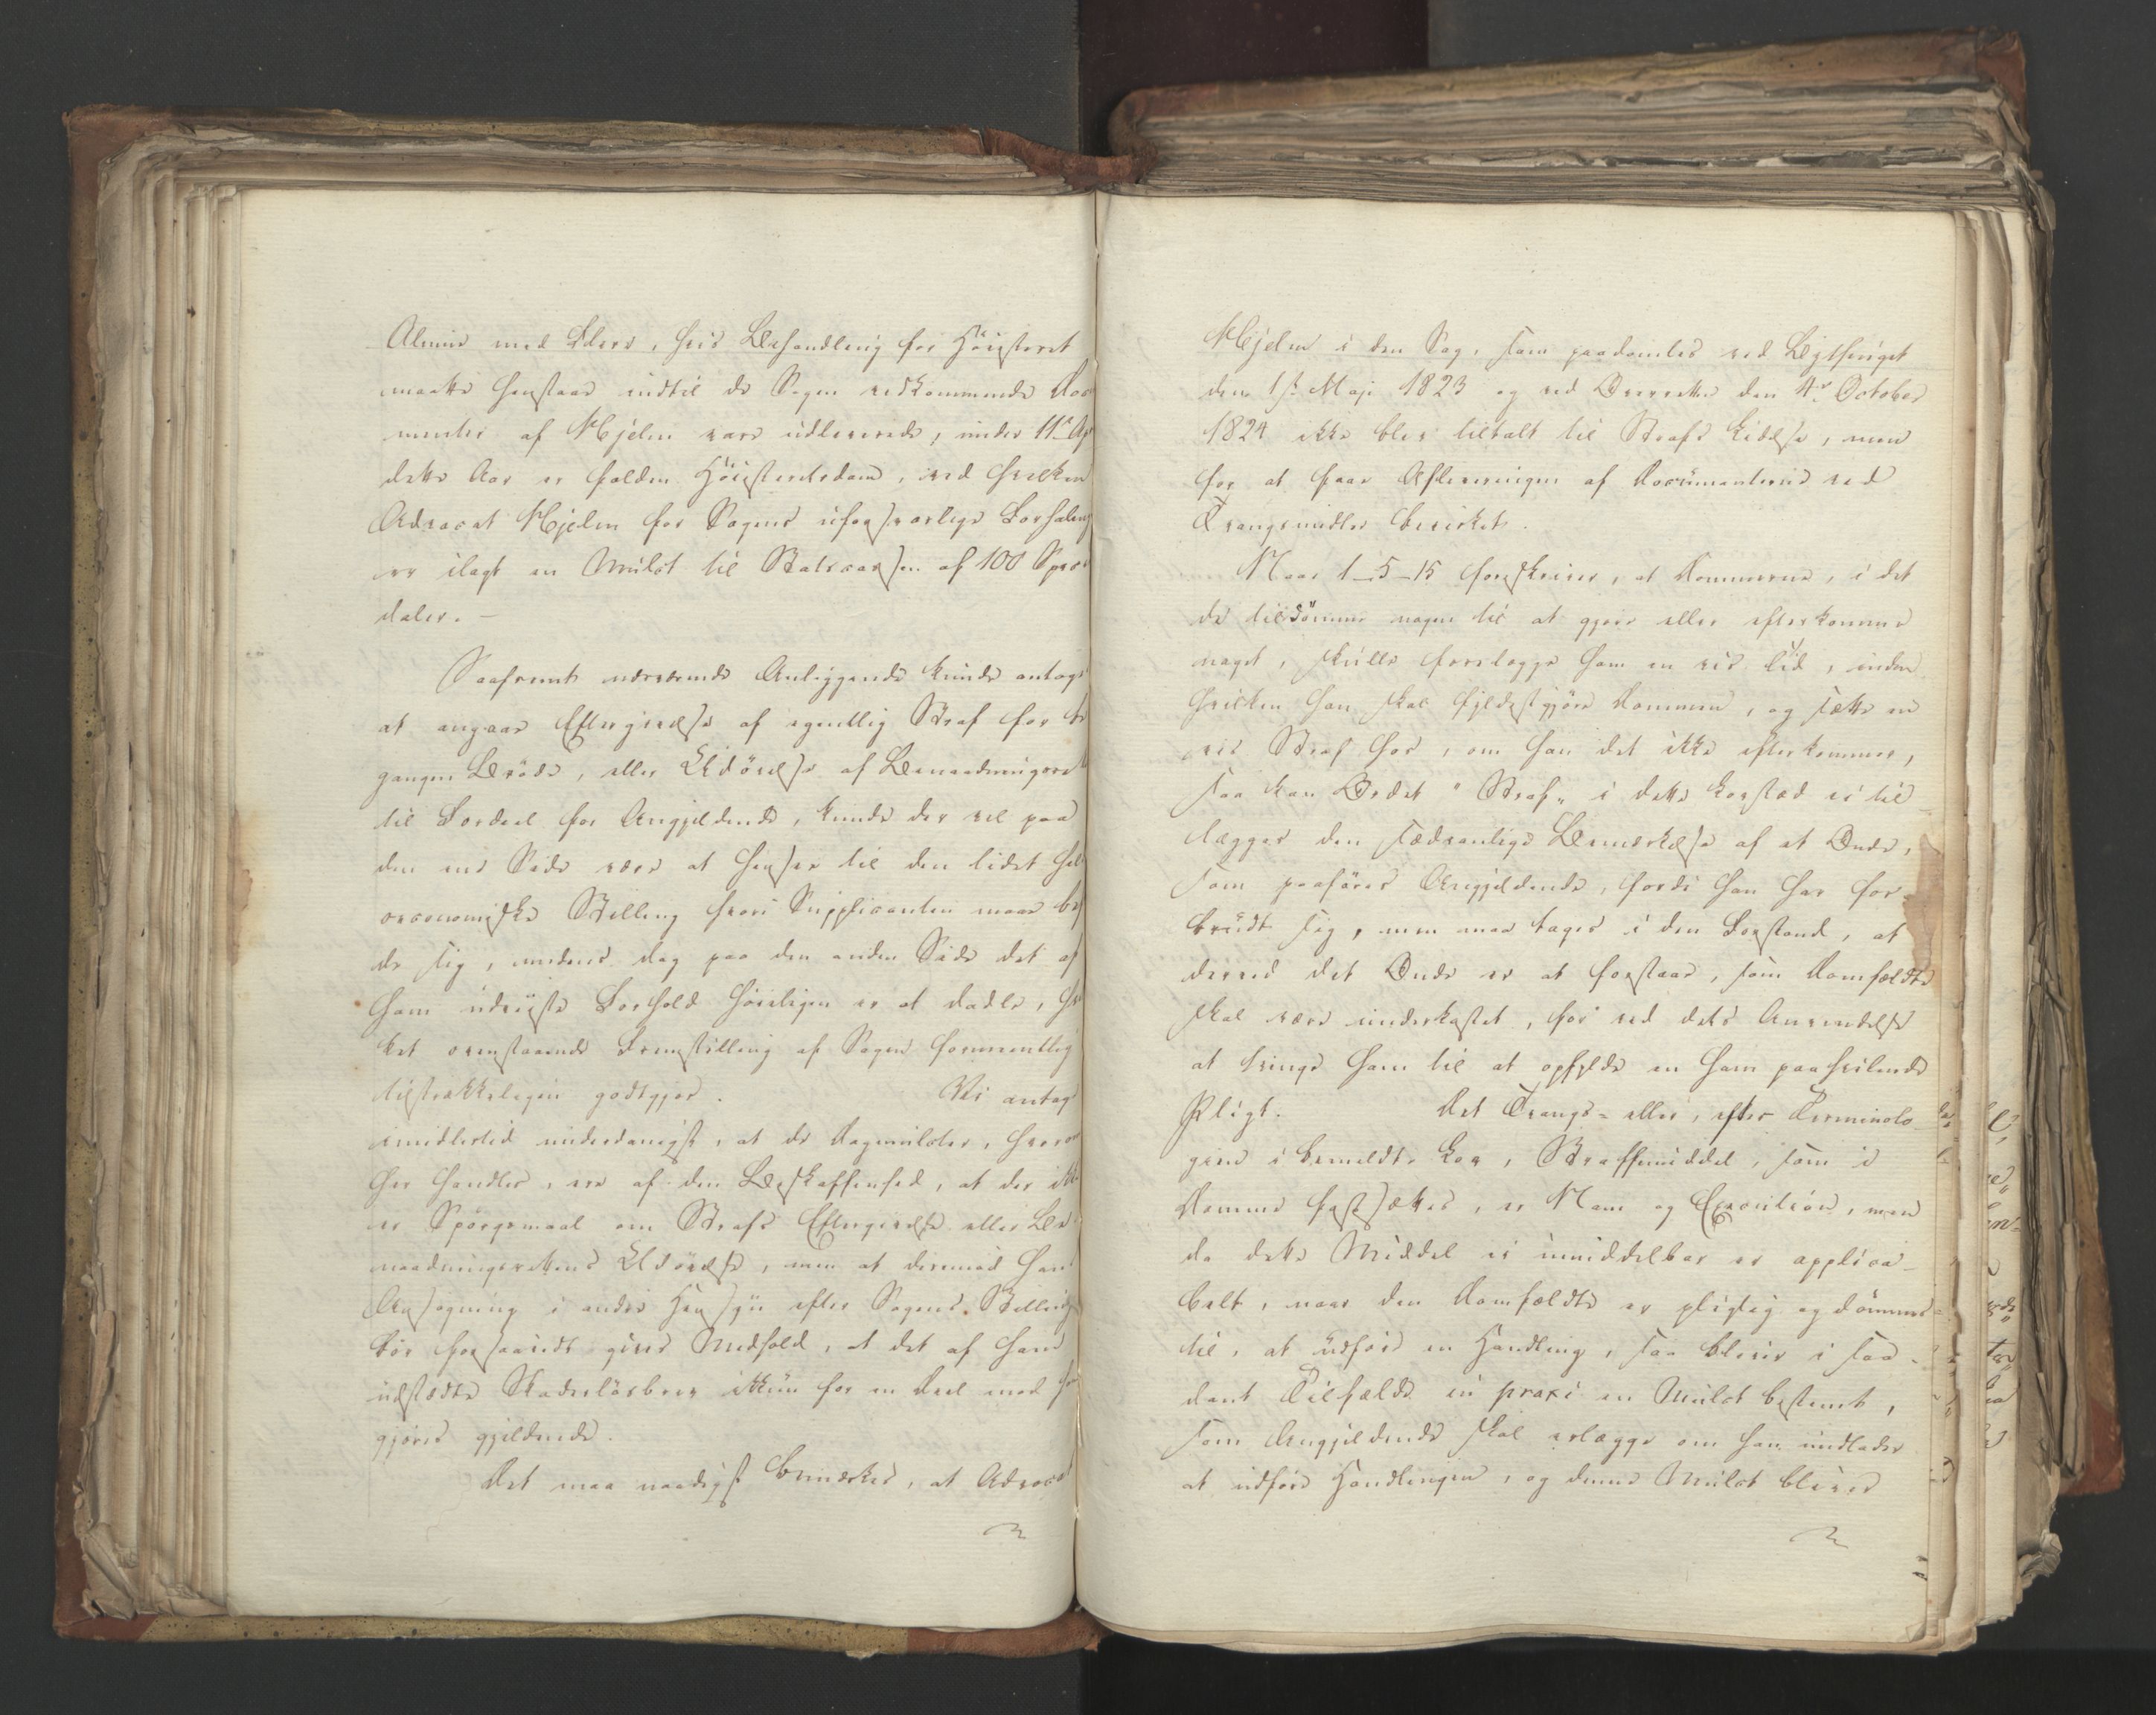 Alminn med Flere, hvis Behandling for Höiesteret
maatte henstaae indtil de Sagen vedkommende Docu
menter af Hjelm vare udleverede, under 11te Ap
dette Aar er falden Höiesteretsdom, ved hvilken
Advocat Hjelm for Sagens uforsvarlige Forhaling
er ilagt en Mulct til Statscassen af 100 Specie
daler. –
Saafremt nærværende Anliggende kunde antages
at angaae Eftergivelse af egentlig Straf for be
gangen Bröde, eller Udövelse af Benaadningsret
til Fordeel for Angjeldende, kunde der vel paa
den ene Side være at hensee til den lidet held
oeconomiske Stilling hvori Supplicanten maae befin
de sig, medens dog paa den anden Side det af
ham udviiste Forhold höiligen er at dadle, hvil
ket ovenstaaende Fremstilling af Sagen formeentlig
tilstrækkeligen godtgjør. Vi antage
imidlertid underdanigst, at de Dagmulcter, hvorom
her handles, ere af den Beskaffenhed, at der ikke
er Spörgsmaal om Strafs Eftergivelse eller Be
naadningsrettens Udövelse, men at derimod hans
Ansögning i andet Hensyn efter Sagens Stilling
bör forsaavidt gives Medhold, at det af ham
udstædte Skadeslösbrev ikkun for en Deel mod ham
gjöres gjeldende.
Det maa naadigst bemærkes, at Advocat
Hjelm i den Sag, som paadömtes ved Bythinget
den 1ste Maji 1823 og ved Overretten den 4de October
1824 ikke blev tiltalt til Strafs Lidelse, men
for at faae Afleveringen af Documenterne ved
Tvangsmidler bevirket.
Naar 1–5–15 foreskriver, at Dommerne, i det
de tildömme nogen til at gjöre eller efterkomme
noget, skulle forelægge ham en vis Tid, inden
hvilken han skal fyldestgjöre Dommen, og sætte en
vis Straf for, om han det ikke efterkommer,
saa kan Ordet "Straf" i dette Lovsted ei til
lægges den sædvanlige Bemærkelse af et Onde,
som paaföres Angjeldende, fordi han har for
brudt sig, men maa tages i den Forstand, at
derved det Onde er at forstaae, som Domfældte
skal være underkastet, for ved dets Anvendelse
at tvinge ham til at opfylde en ham paahvilende
Pligt. Det Tvangs- eller, efter Terminolo
gien i bemeldte Lov, Straffemiddel, som i
Domme fastsættes, er Nam og Execution, men
da dette Middel ei umiddelbar er applica
belt, naar den Domfældte er pligtig og dömmes
til, at udföre en Handling, saa bliver i saa
dant Tilfælde in praxi en Mulct bestemt,
som Angjeldende skal erlægge om han undlader
at udföre Handlingen, og denne Mulct bliver